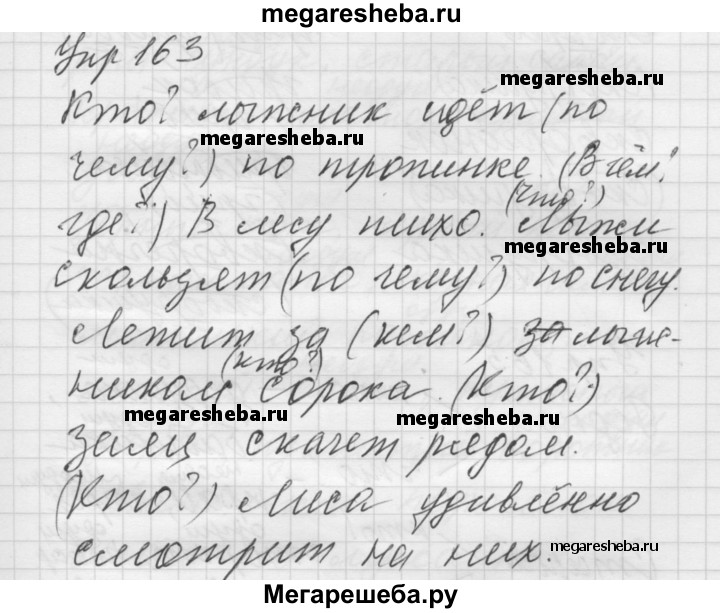 megaresheba.ru
Упр 163
megaresheba.ru
Кто? лыжник идёт (по
megaresheba.ru
чему?) по тропинке. (В чём?
(что?)
где?) В лесу тихо. Лыжи
megaresheba.ru
скользят (по чему?) по снегу.
Летит за (кем?) за лыж-
(кто?)
ником сорока. (Кто?)
megaresheba.ru megaresheba.ru
заяц скачет рядом.
(Кто?) Лиса удивлённо
смотрит на них.
megaresheba.ru
Мегарешеба.ру